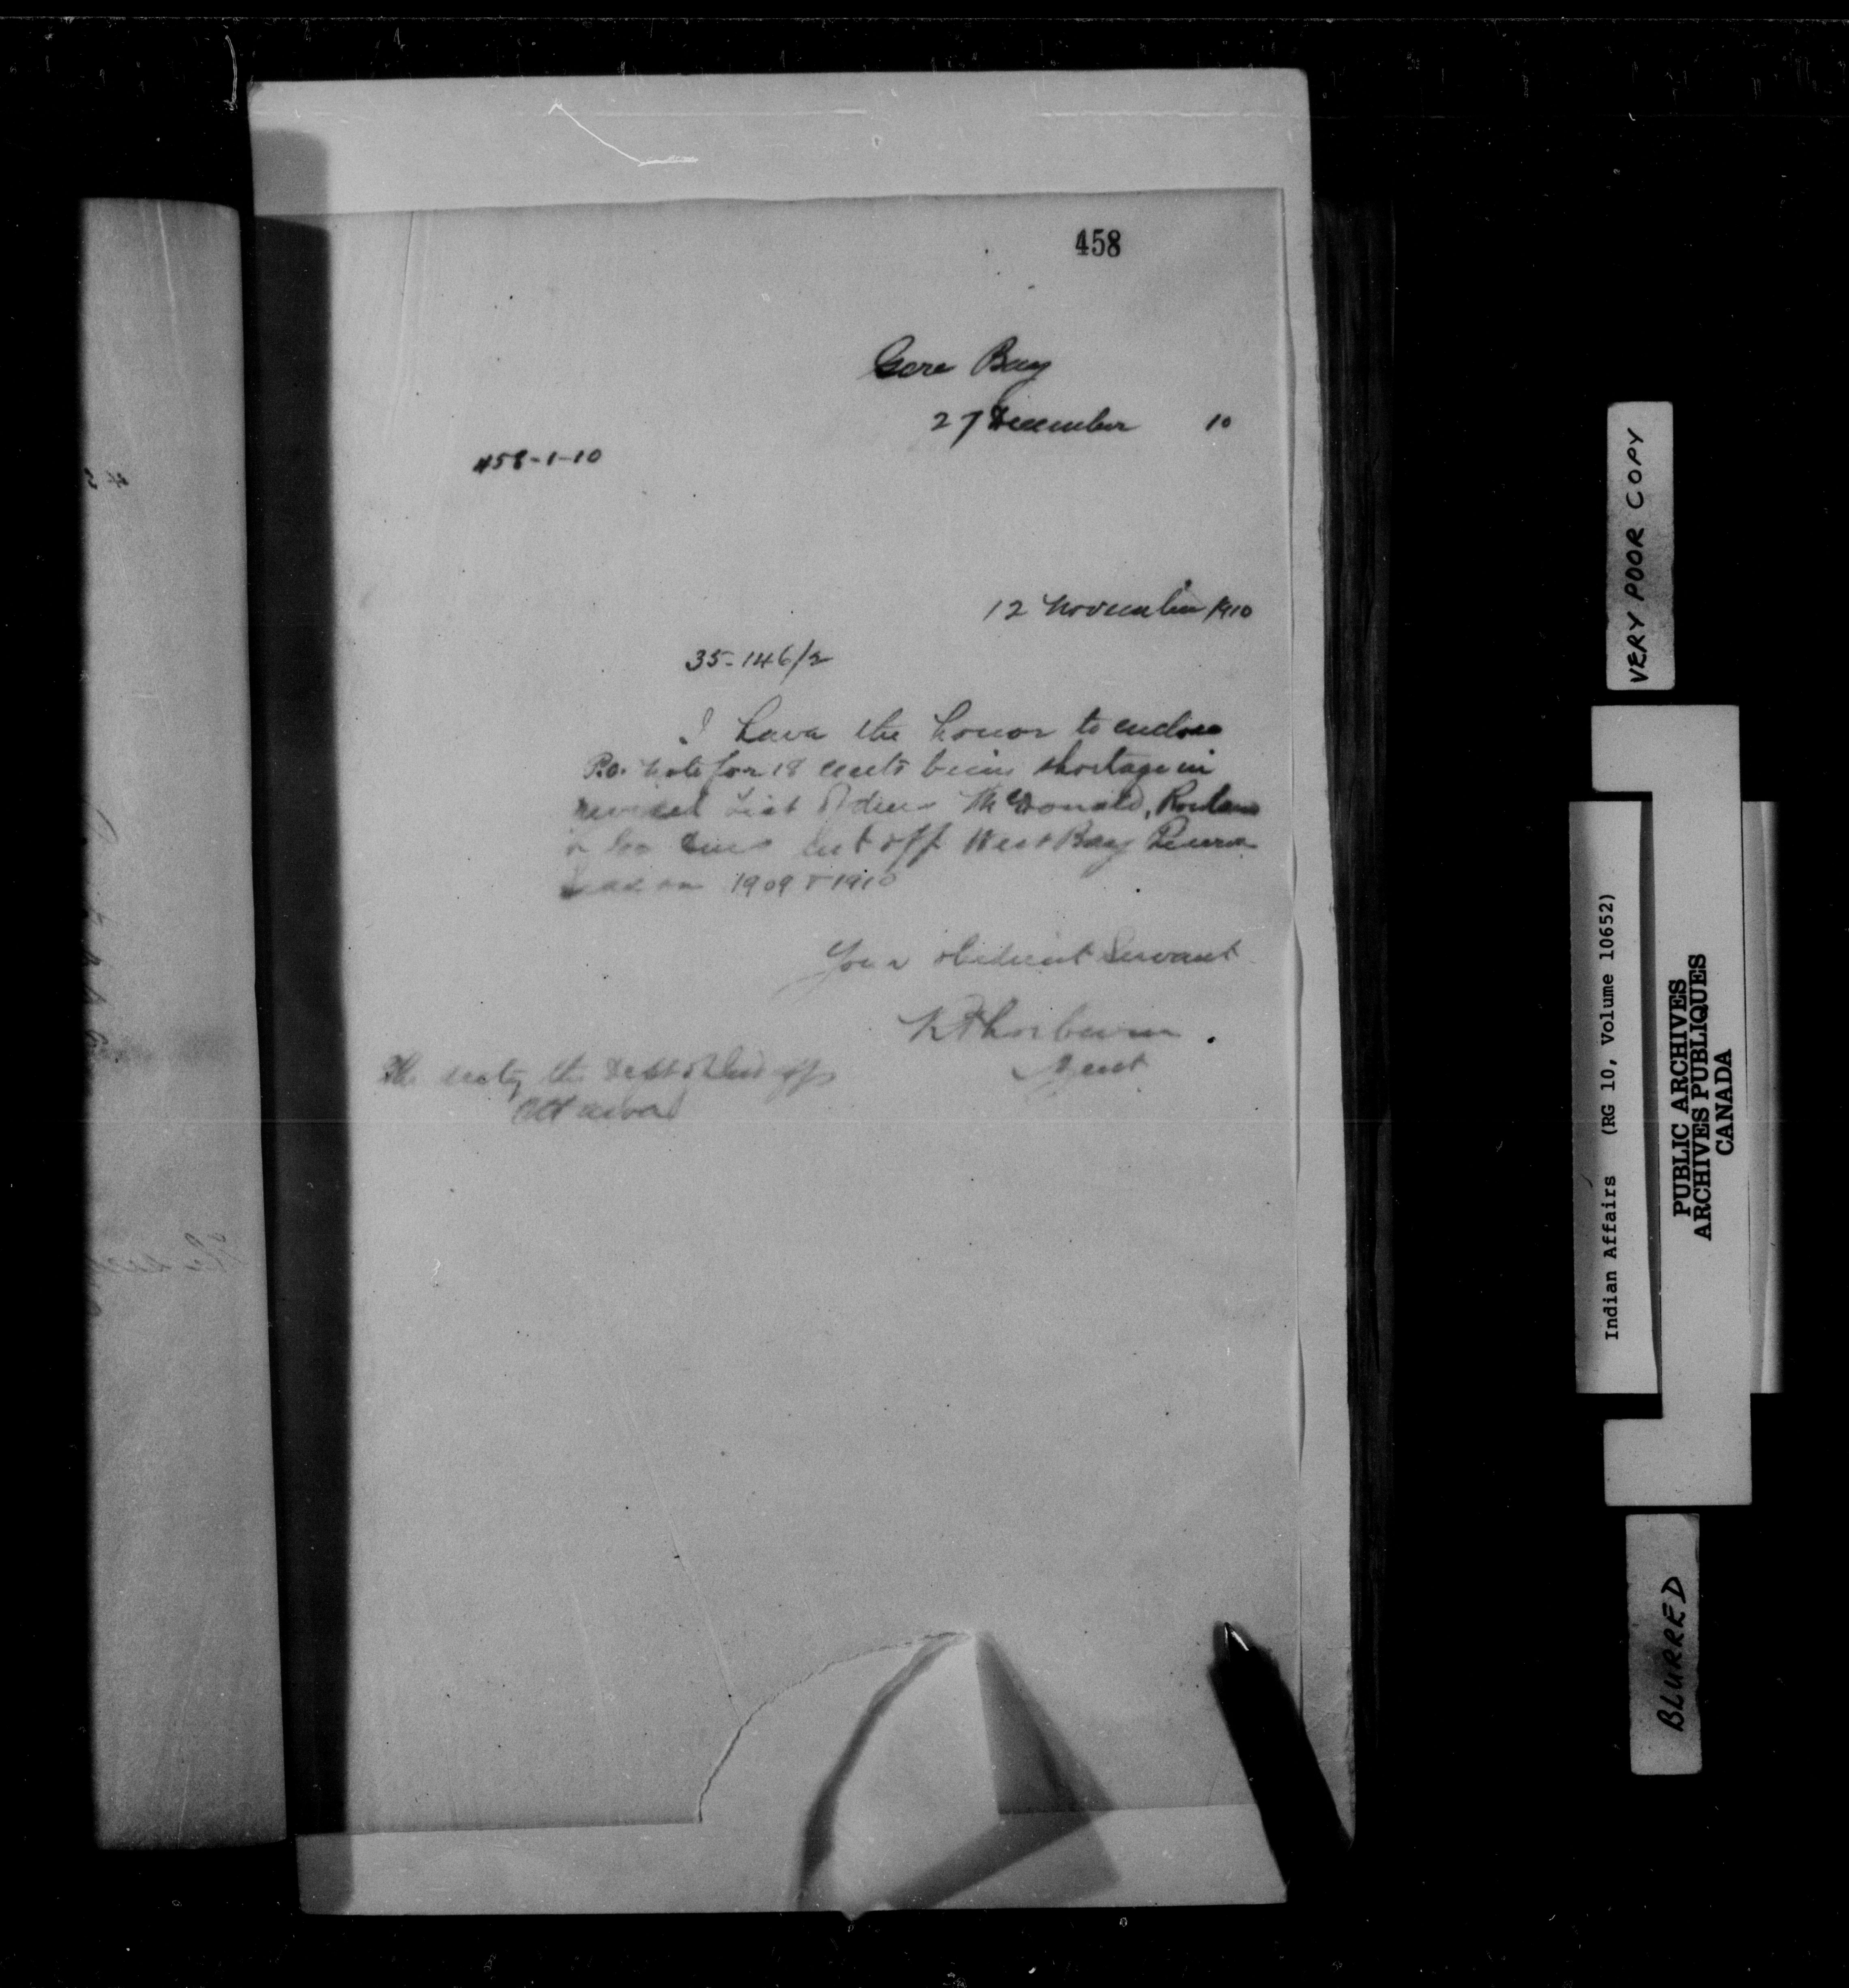 458
Gore Bay
27 December 10
458-1-10
12 November 1910
35-146/2
I have the honor to enclose
P.O. note for 18 cents being shortage in
revised List of dues McDonald,
dues cut off West Bay
1909 & 1910
Your obedient Servant
Agent
The secty the Dept of Ind Aff
Ottawa
VERY POOR COPY
Indian Affairs (RG 10, Volume 10652)
PUBLIC ARCHIVES
ARCHIVES PUBLIQUES
CANADA
BLURRED